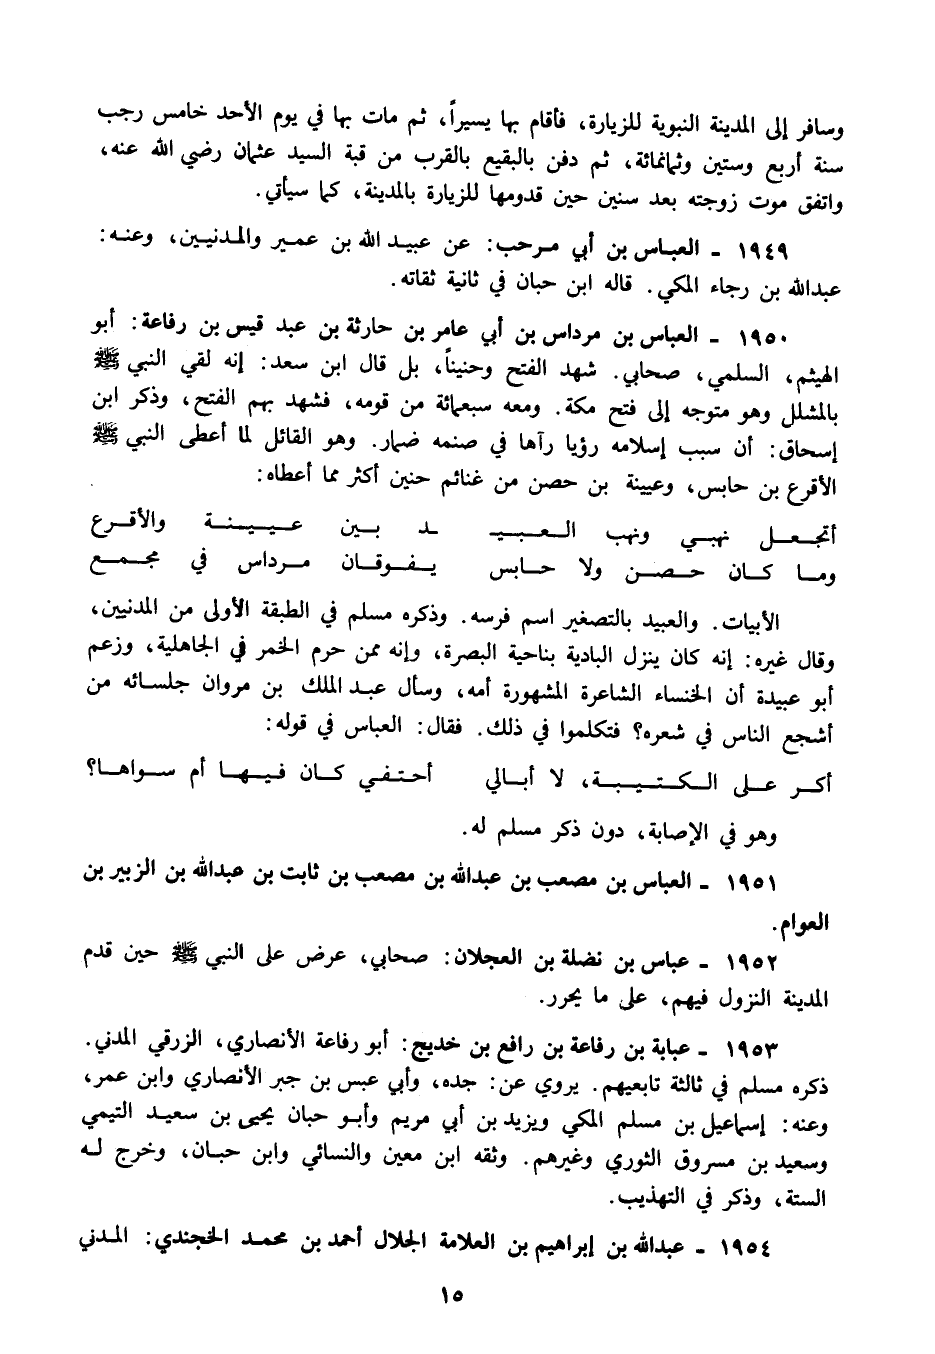 وسافر إلى المدينة النبوية للزيارة، فأقام بها يسيراً، ثم مات بها في يوم الأحد خامس رجب
سنة أربع وستين وثمانمائة، ثم دفن بالبقيع بالقرب من قبة السيد عثمان رضي الله عنه،
واتفق موت زوجته بعد سنين حين قدومها للزيارة بالمدينة، كما سيأتي.
١٩٤٩ - العباس بن أبي مرحب: عن عبيد الله بن عمير والمدنيين، وعنه:
عبدالله بن رجاء المكي. قاله ابن حبان في ثانية ثقاته.
١٩٥٠ - العباس بن مرداس بن أبي عامر بن حارثة بن عبد قيس بن رفاعة: أبو
الهيثم، السلمي، صحابي. شهد الفتح وحنيناً، بل قال ابن سعد: إنه لقي النبي ﷺ
بالمشلل وهو متوجه إلى فتح مكة. ومعه سبعمائة من قومه، فشهد بهم الفتح، وذكر ابن
إسحاق: أن سبب إسلامه رؤيا رآها في صنمه ضمار. وهو القائل لما أعطى النبي ﷺ
الأقرع بن حابس، وعيينة بن حصن من غنائم حنين أكثر مما أعطاه:
أتجعل نهبي ونهب العبيـ ـد بين عيينة والأقرع
وما كان حصن ولا حابس يفوقان مرداس في مجمع
الأبيات. والعبيد بالتصغير اسم فرسه. وذكره مسلم في الطبقة الأولى من المدنيين،
وقال غيره: إنه كان ينزل البادية بناحية البصرة، وإنه ممن حرم الخمر في الجاهلية، وزعم
أبو عبيدة أن الخنساء الشاعرة المشهورة أمه، وسأل عبد الملك بن مروان جلسائه من
أشجع الناس في شعره؟ فتكلموا في ذلك. فقال: العباس في قوله:
أكر على الكتيبة، لا أبالي أحتفي كان فيها أم سواها؟
وهو في الإصابة، دون ذكر مسلم له.
١٩٥١ - العباس بن مصعب بن عبدالله بن مصعب بن ثابت بن عبدالله بن الزبير بن
العوام.
١٩٥٢ - عباس بن نضلة بن العجلان: صحابي، عرض على النبي ﷺ حين قدم
المدينة النزول فيهم، على ما يحرر.
١٩٥٣ - عباية بن رفاعة بن رافع بن خديج: أبو رفاعة الأنصاري، الزرقي المدني.
ذكره مسلم في ثالثة تابعيهم. يروي عن: جده، وأبي عبس بن جبر الأنصاري وابن عمر،
وعنه: إسماعيل بن مسلم المكي ويزيد بن أبي مريم وأبو حبان يحيى بن سعيد التيمي
وسعيد بن مسروق الثوري وغيرهم. وثقه ابن معين والنسائي وابن حبان، وخرج له
الستة، وذكر في التهذيب.
١٩٥٤ - عبدالله بن إبراهيم بن العلامة الجلال أحمد بن محمد الخجندي: المدني
١٥